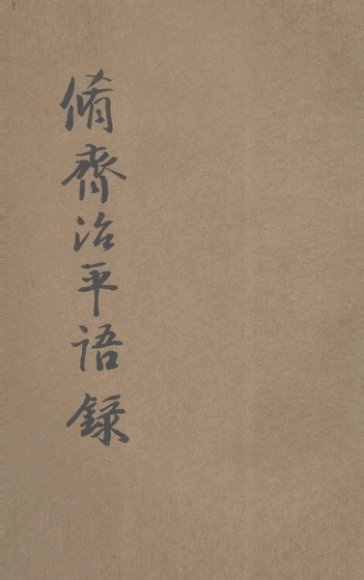 脩齊治平語錄